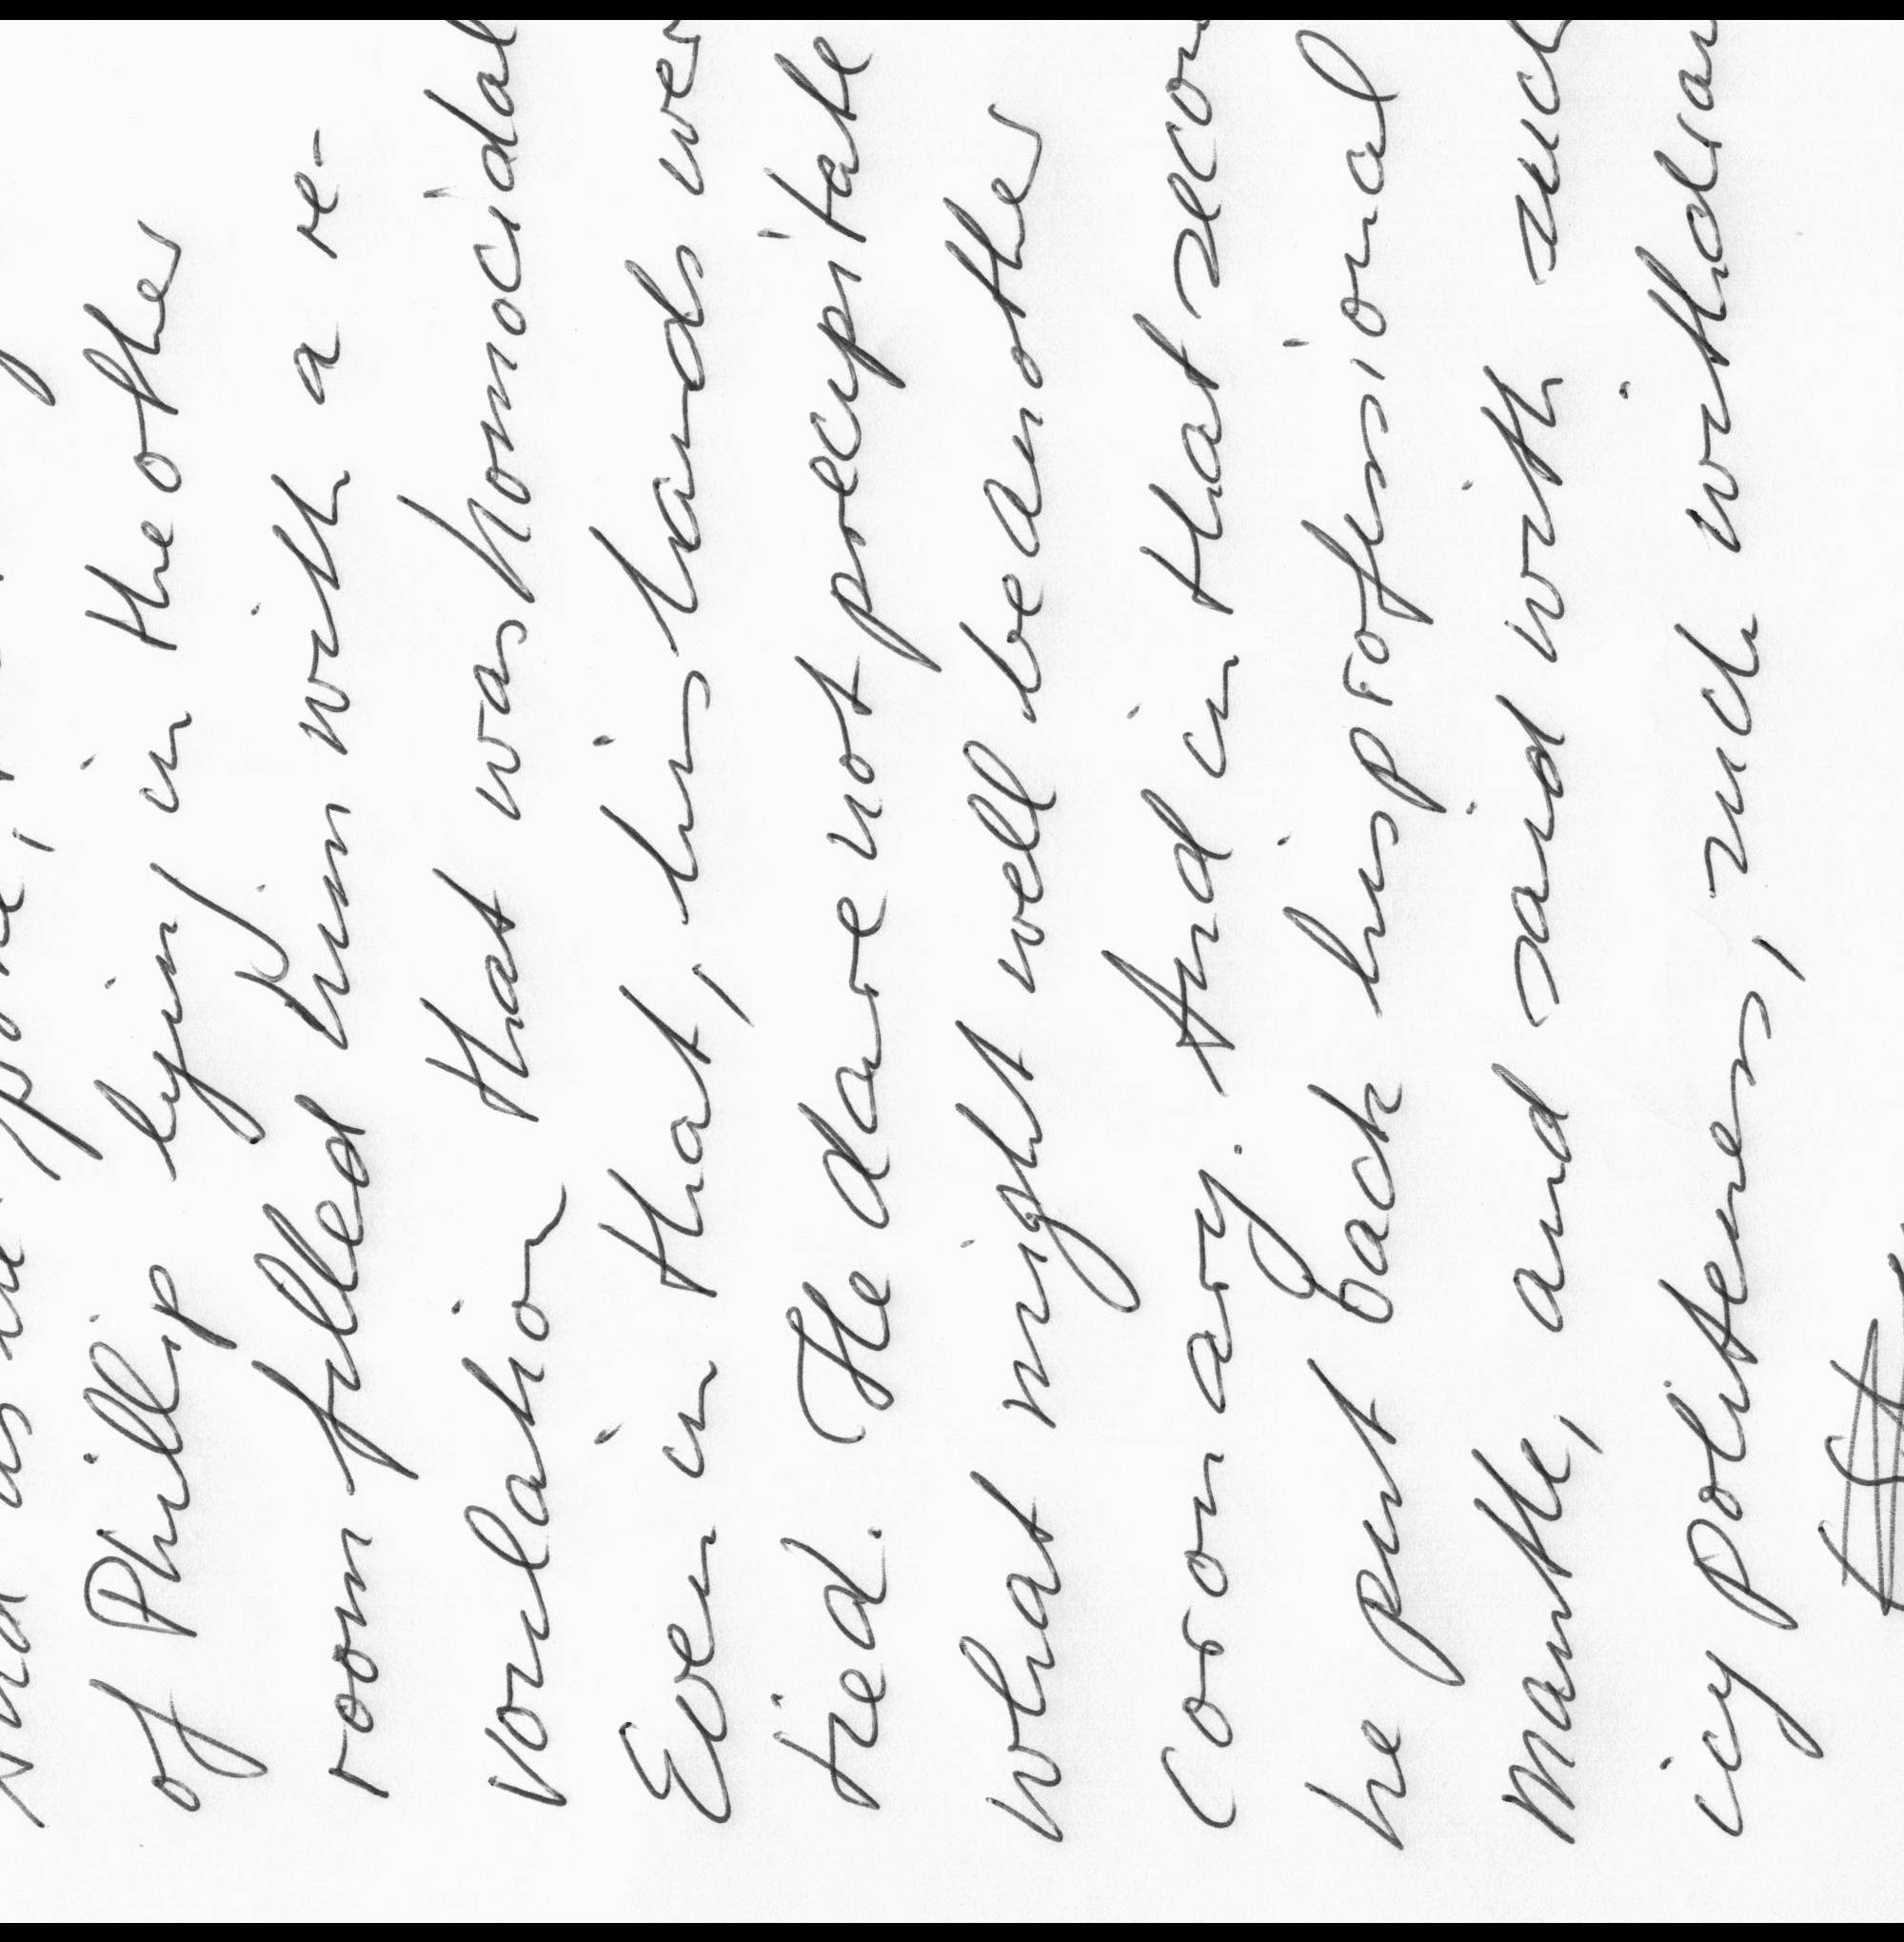 of Phillip lying in the other
room filled him with a re-
vorlation that was homocidal
Even in that, his hands wer
tied. He dare not precepitate
what might well be another
coronary. And in that secon
he put back his professional
mantle, and said with such
icy politeness, such withdraw